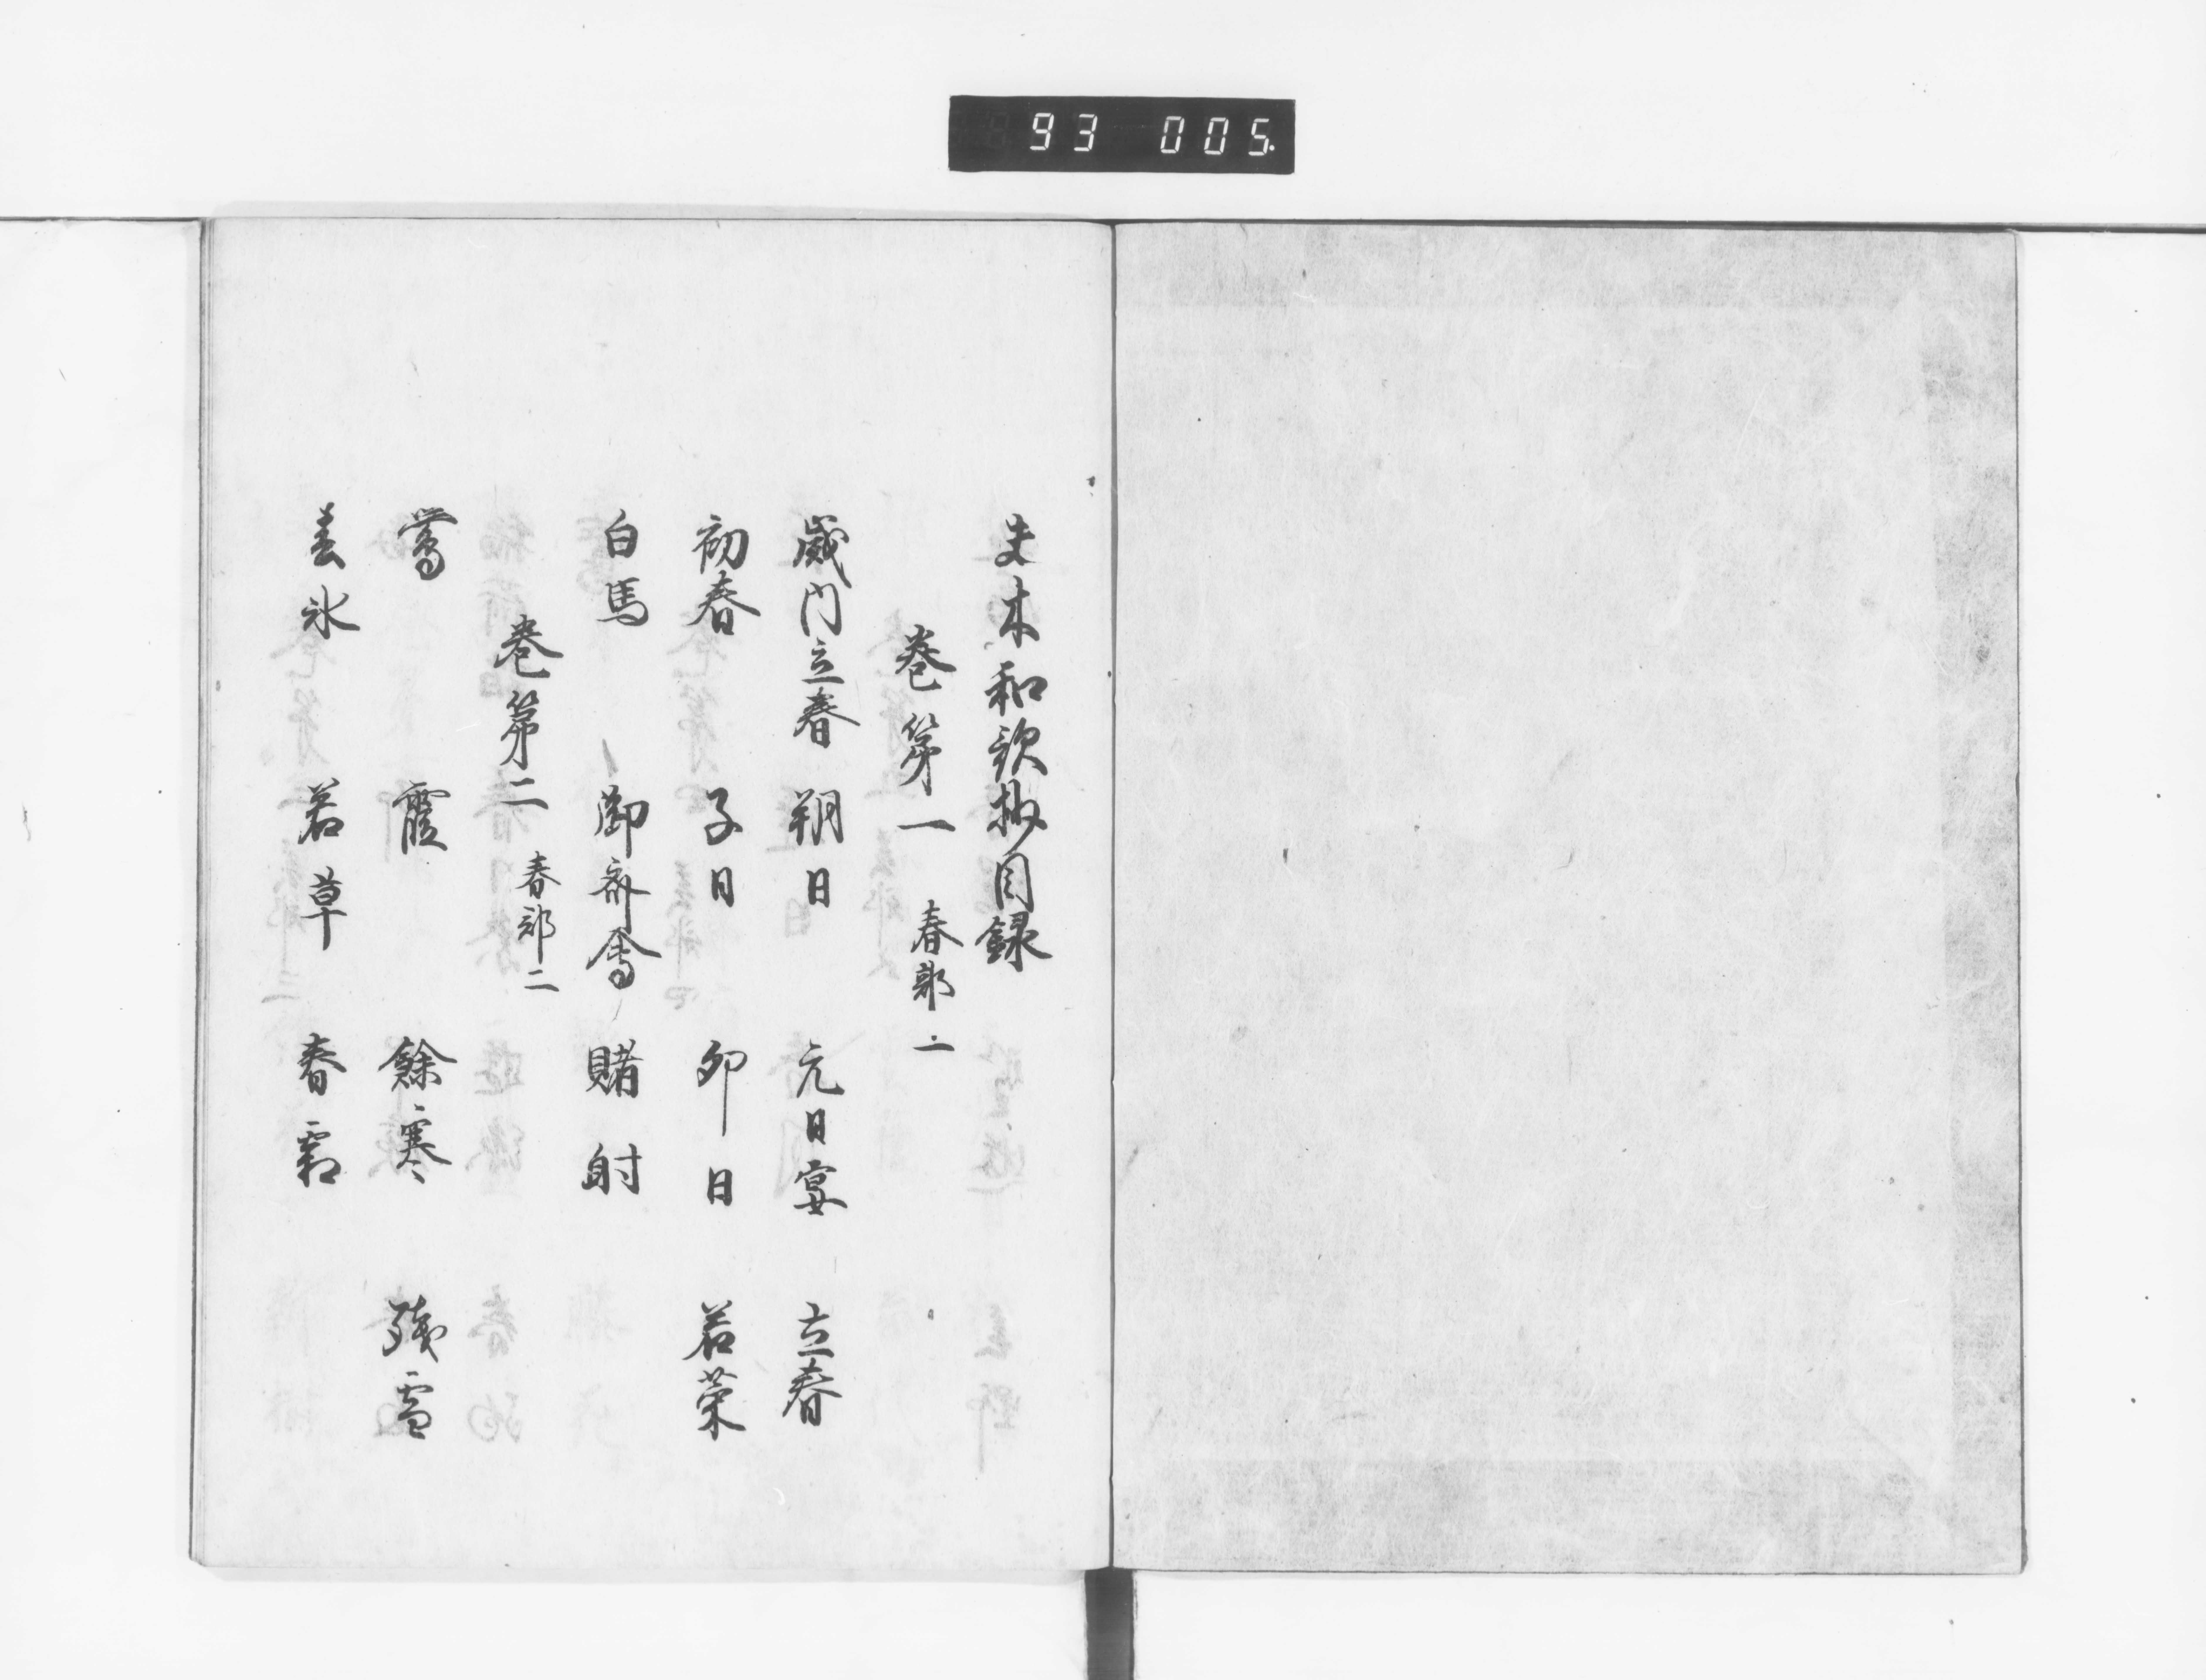 93 005.
夫木和歌抄目録
巻第一 春部一
歳内立春 朔日 元日宴 立春
初春 子日 卯日 若菜
白馬 御斎会 賭射
巻第二 春部二
鶯 霞 餘寒 残雪
春氷 若草 春霜